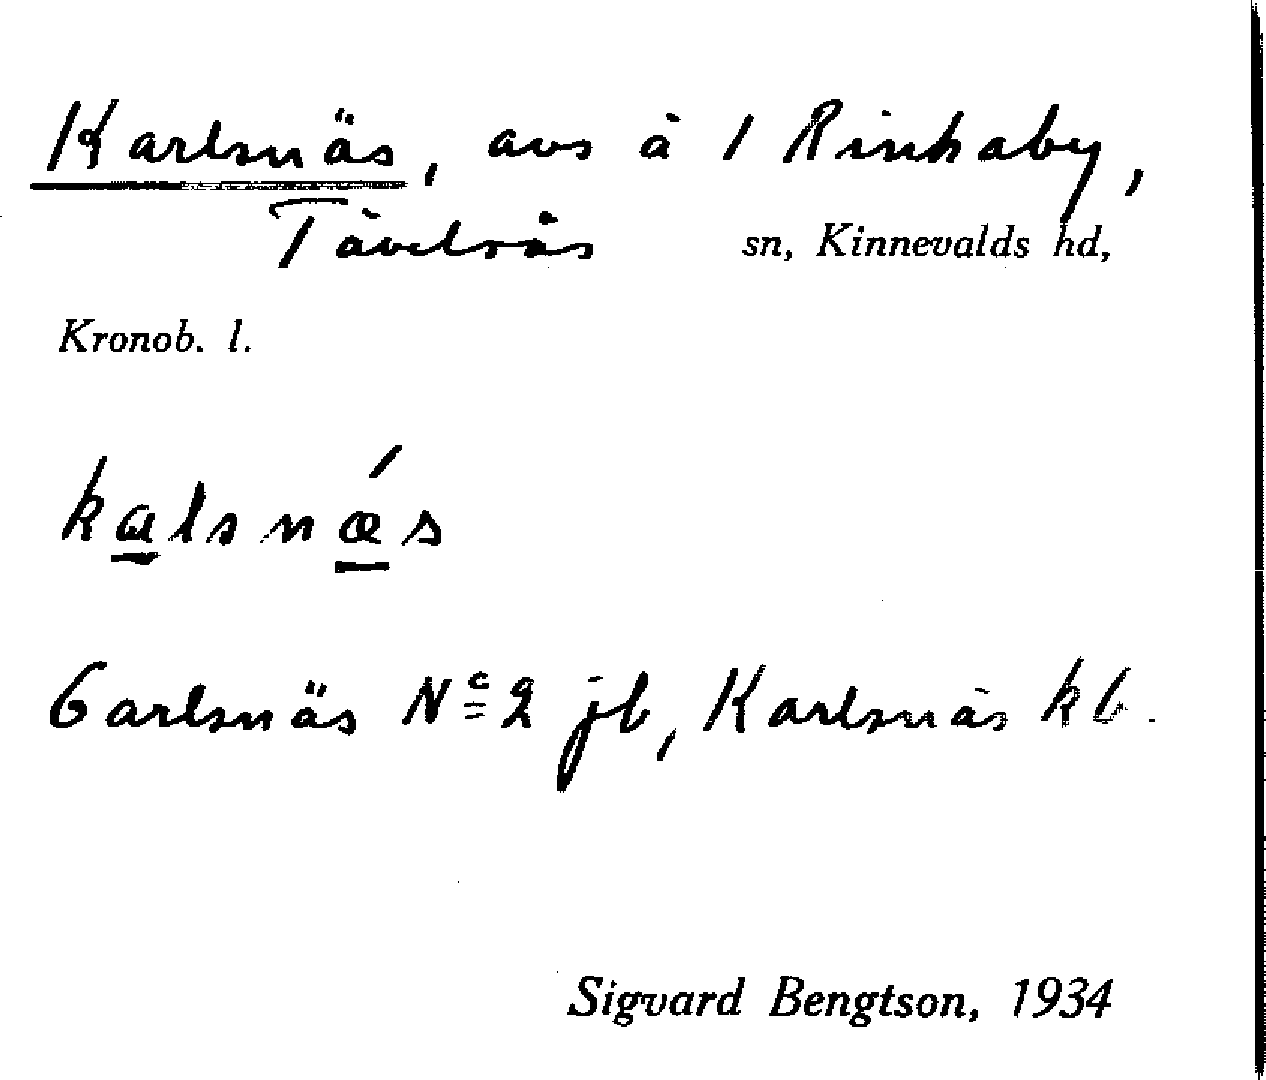 Karlsnäs, avs å 1 Rinkaby,
Tävelsås sn, Kinnevalds hd,
Kronob. l.
kalsnǽs
Carlsnäs No 2 jb, Karlsnäs kb.
Sigvard Bengtson, 1934